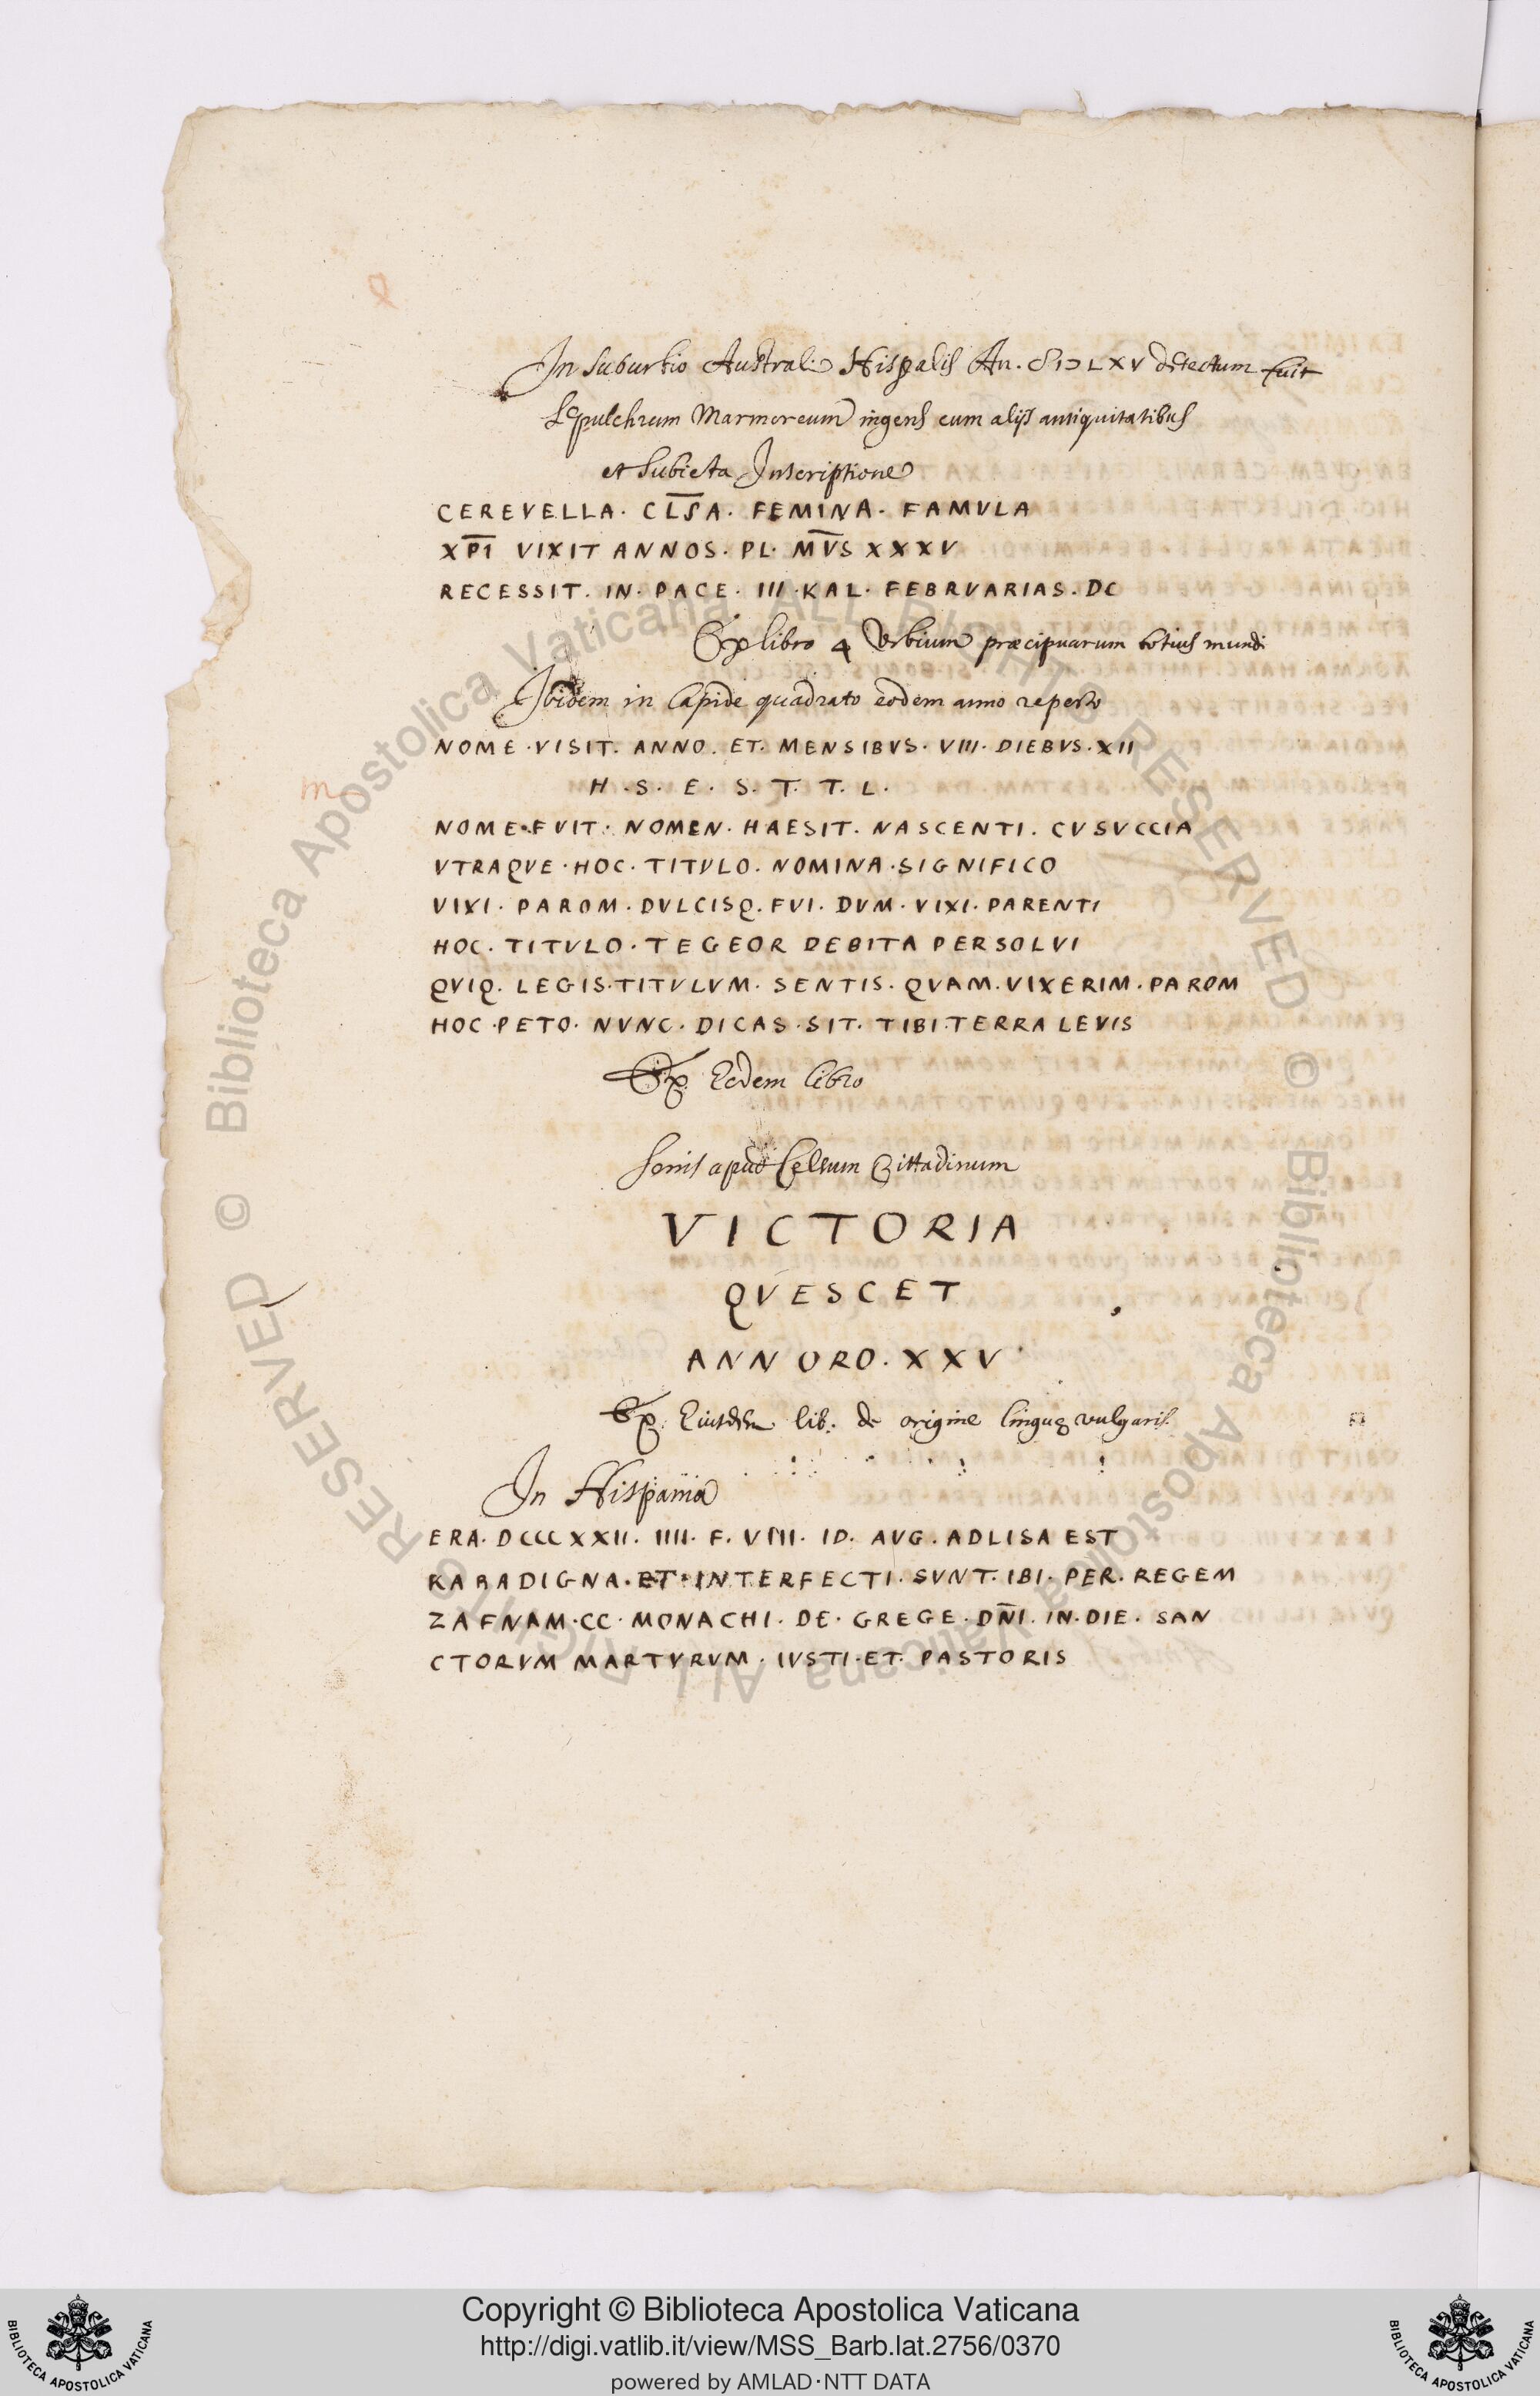 In suburbio Australi Hispalis An. CIↃLXV detectum fuit
Sepulchrum Marmoreum ingens cum alijs antiquitatibus
et subiecta Inscriptione
CEREVELLA. CLSA. FEMINA. FAMVLA
XPI VIXIT ANNOS. PL. MVS XXXV
RECESSIT. IN. PACE. III. KAL. FEBRVARIAS. DC
Ex libro 4 Urbium præcipuarum totius mundi
Ibidem in lapide quadrato eodem anno reperto
NOME. VISIT. ANNO. ET. MENSIBVS. VIII. DIEBVS. XII
H. S. E. S. T. T. L.
NOME. FVIT. NOMEN. HAESIT. NASCENTI. CVSVCCIA
VTRAQVE. HOC. TITVLO. NOMINA. SIGNIFICO
VIXI. PAROM. DVLCISQ. FVI. DVM. VIXI. PARENTI
HOC. TITVLO. TEGEOR DEBITA PERSOLVI
QVIQ. LEGIS. TITVLVM. SENTIS. QVAM. VIXERIM. PAROM
HOC. PETO. NVNC. DICAS. SIT. TIBI. TERRA LEVIS
Ex Eodem libro
Senis apud Celsum Cittadinum
VICTORIA
QVESCET
ANNORO. XXV
Ex Eiusdem lib. de origine linguę vulgaris
In Hispania
ERA. DCCCXXII. IIII. F. VIII. ID. AVG. ADLISA EST
KARADIGNA. ET. INTERFECTI. SVNT. IBI. PER. REGEM
ZAFNAM. CC. MONACHI. DE. GREGE. DN̄I. IN. DIE. SAN
CTORVM MARTVRVM. IVSTI. ET. PASTORIS
© Biblioteca Apostolica Vaticana ALL RIGHTS RESERVED © Biblioteca Apostolica Vaticana ALL RIGHTS RESERVED
Copyright © Biblioteca Apostolica Vaticana
http://digi.vatlib.it/view/MSS_Barb.lat.2756/0370
powered by AMLAD·NTT DATA
BIBLIOTECA APOSTOLICA VATICANA
BIBLIOTECA APOSTOLICA VATICANA